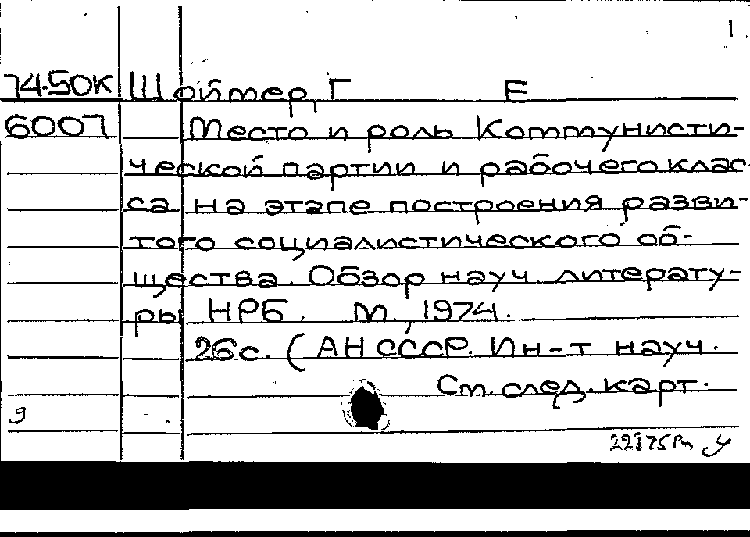 1.
74-50К Шоймер, Г Е
6007 Место и роль Коммунисти-
ческой партии и рабочего клас
са на этапе построения разви-
того социалистического об-
щества. Обзор науч литерату-
ры НРБ. М., 1974.
26с. (АН СССР. Ин-т науч.
См. след. карт.
9